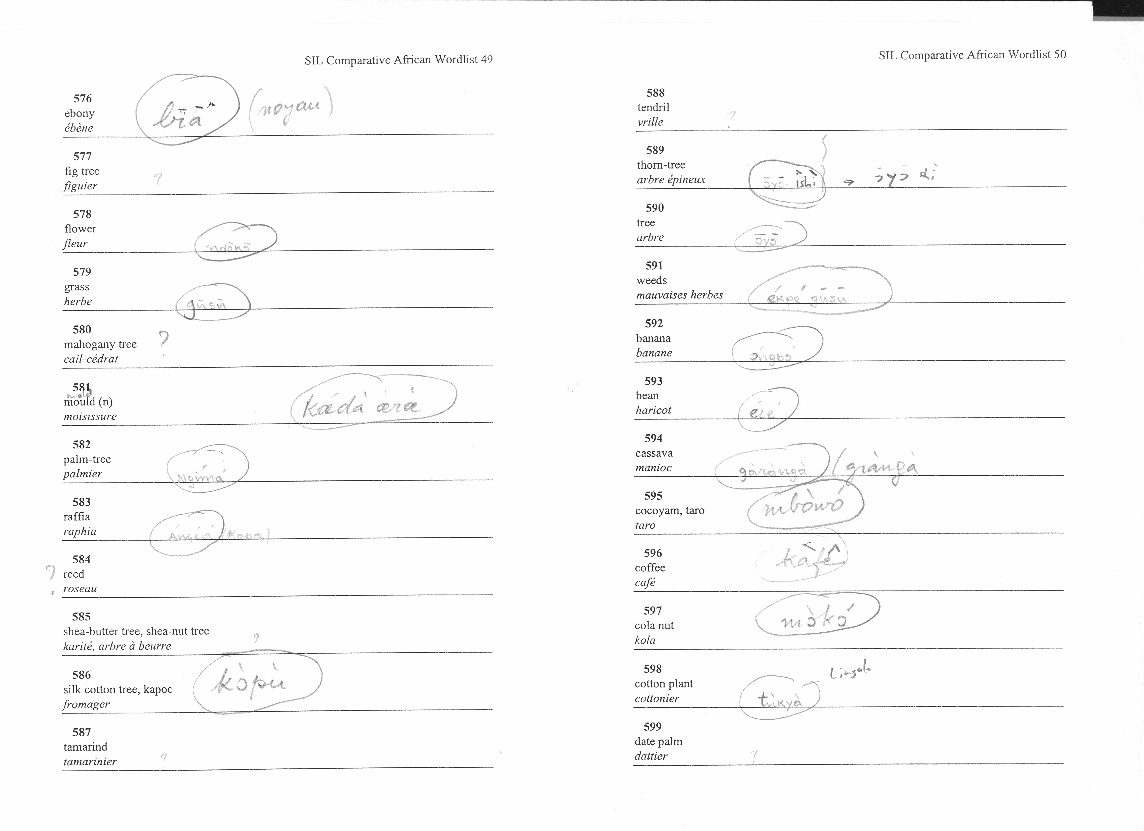 SIL Comparative African Wordlist 49
576
ebony
ébène
bīā (noyau)
577
fig tree
figuier
?
578
flower
fleur
579
grass
herbe
gūsū
580
mahogany tree
cail-cédrat
?
581
mould (n)
moisissure
582
palm-tree
palmier
583
raffia
raphia
584
reed
roseau
?
585
shea-butter tree, shea-nut tree
karité, arbre à beurre
?
586
silk cotton tree, kapoc
fromager
kɔ̀pù
587
tamarind
tamarinier
?
SIL Comparative African Wordlist 50
588
tendril
vrille
?
589
thorn-tree
arbre épineux
590
tree
arbre
ɔ̄yɔ̄
591
weeds
mauvaises herbes
592
banana
banane
593
bean
haricot
594
cassava
manioc
gàràngà
595
cocoyam, taro
taro
mbòwó
596
coffee
café
597
cola nut
kola
mɔ̀kɔ́
598
cotton plant
cottonier
Lingala
599
date palm
dattier
?